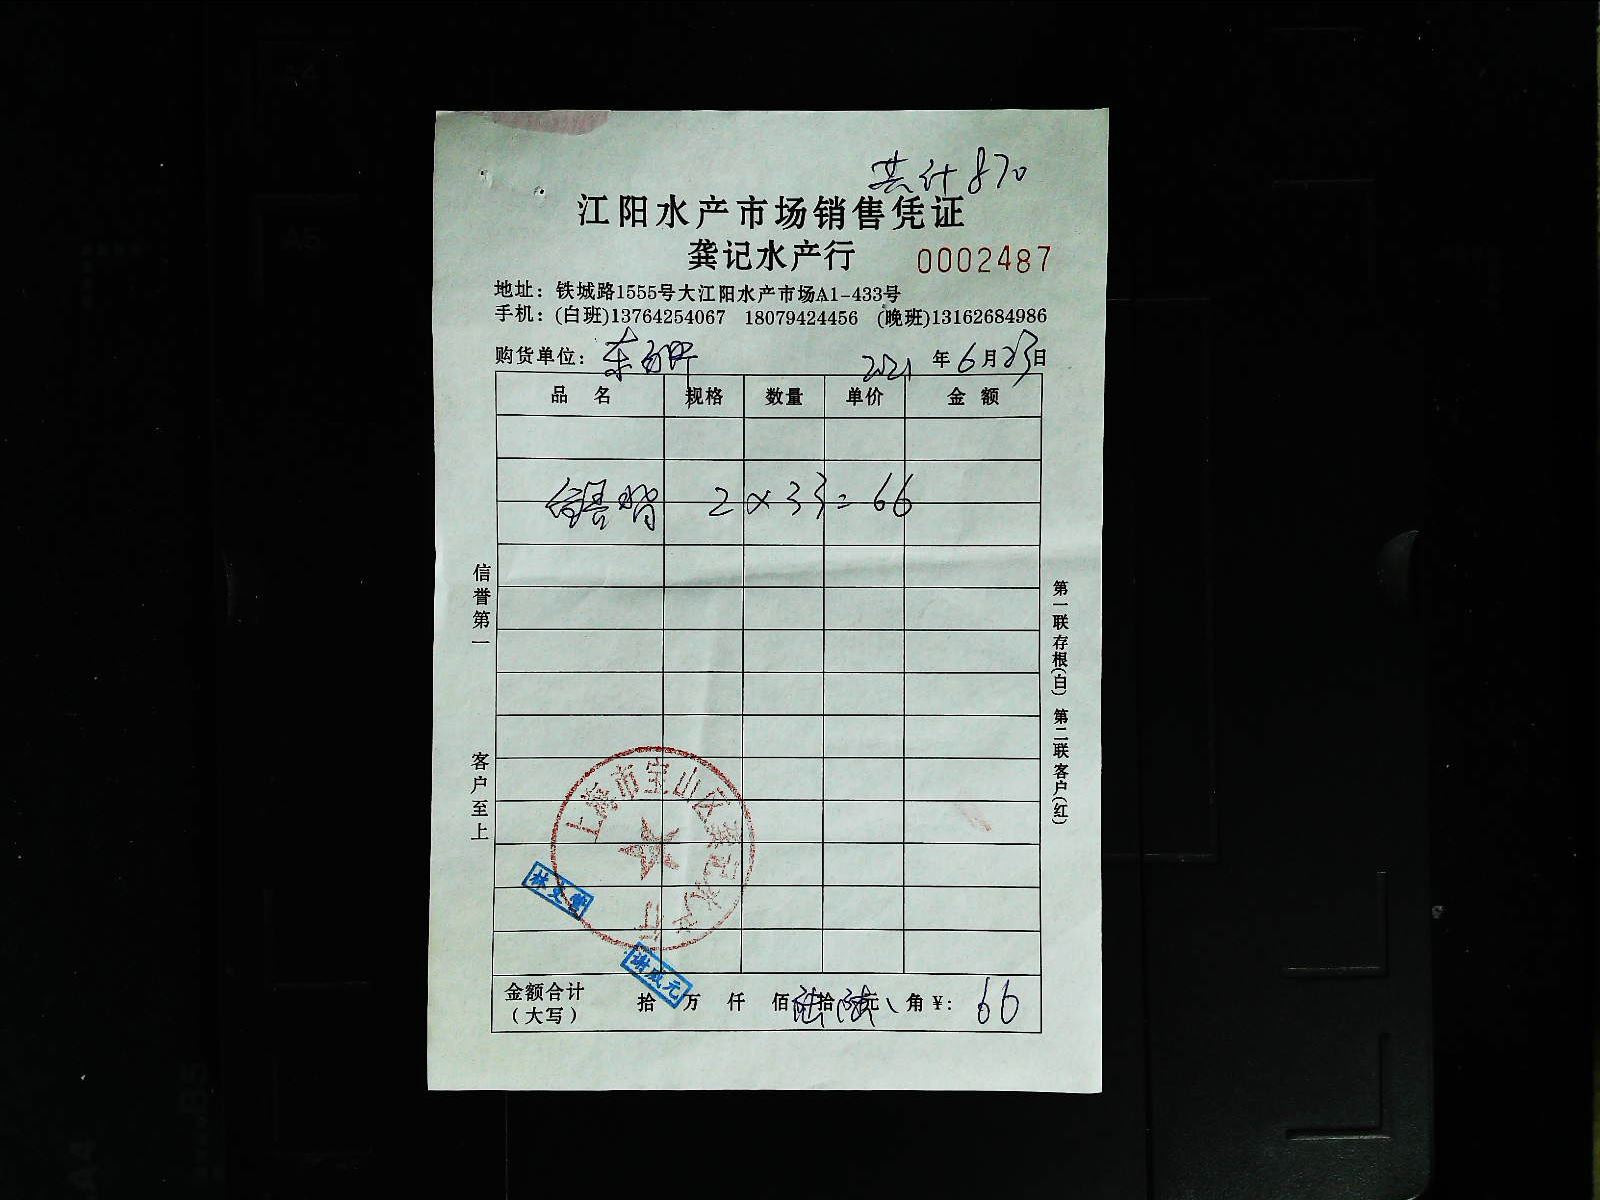 共计870
江阳水产市场销售凭证
龚记水产行 0002487
地址：铁城路1555号大江阳水产市场A1-433号
手机：(白班)13764254067 18079424456 (晚班)13162684986
购货单位： 2021年6月23日
品名 规格 数量 单价 金额
2×33=66
信誉第一 客户至上
第一联存根(白) 第二联客户(红)
上海市宝山区龚记水产行
金额合计（大写） 拾 万 仟 佰 陆拾 陆元 角 ¥: 66